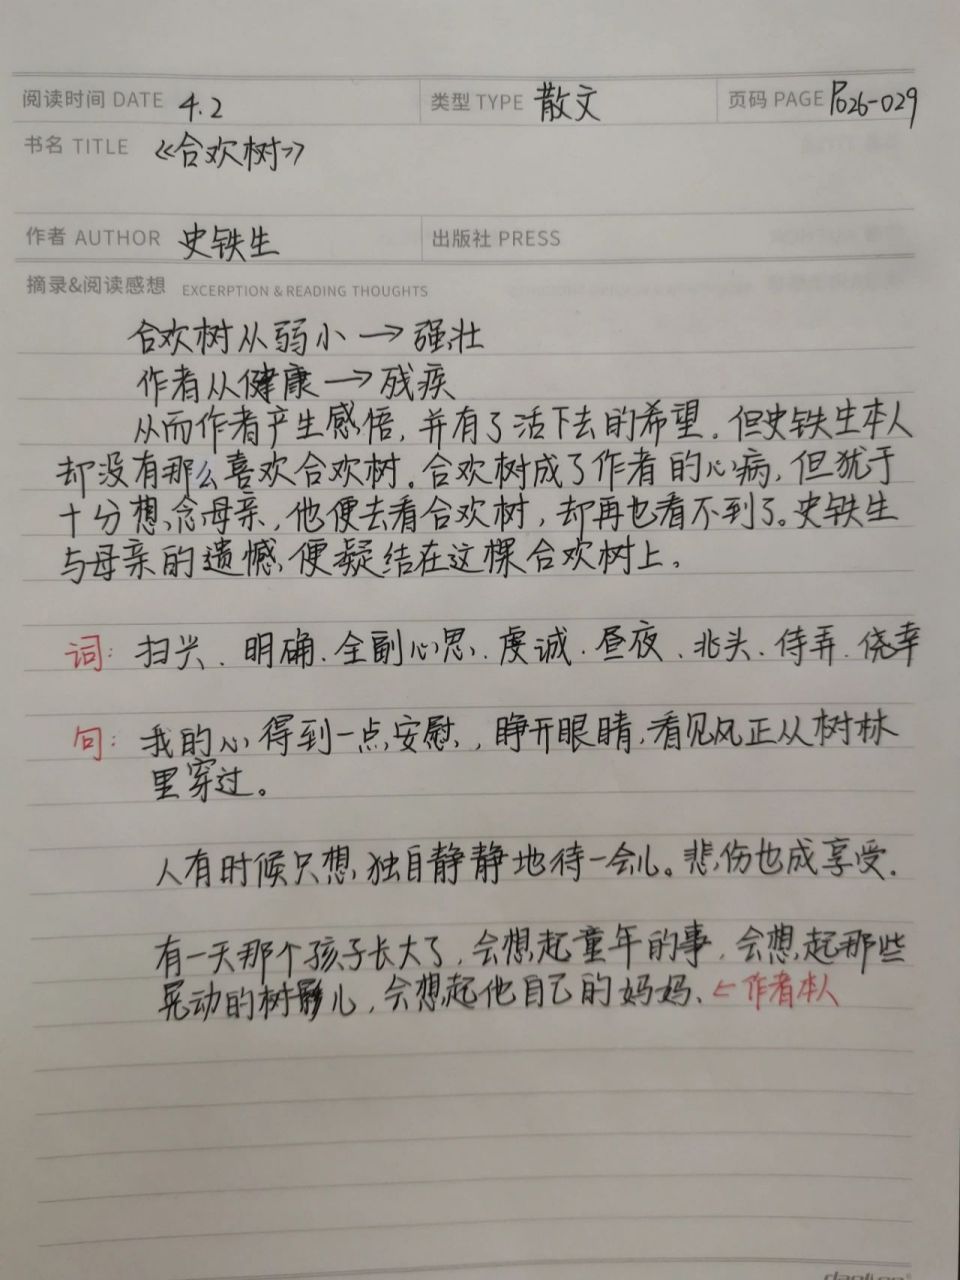 阅读时间 DATE 4.2 类型 TYPE 散文 页码 PAGE P026-029
书名 TITLE 《合欢树》
作者 AUTHOR 史铁生 出版社 PRESS
摘录&阅读感想 EXCERPTION & READING THOUGHTS
合欢树从弱小→强壮
作者从健康→残疾
从而作者产生感悟,并有了活下去的希望。但史铁生本人
却没有那么喜欢合欢树。合欢树成了作者的心病,但犹于
十分想念母亲,他便去看合欢树,却再也看不到了。史铁生
与母亲的遗憾便凝结在这棵合欢树上。
词:扫兴、明确、全副心思、虔诚、昼夜、兆头、侍弄、侥幸
句:我的心得到一点安慰,睁开眼睛,看见风正从树林
里穿过。
人有时候只想独自静静地待一会儿。悲伤也成享受。
有一天那个孩子长大了,会想起童年的事,会想起那些
晃动的树影儿,会想起他自己的妈妈、←作者本人